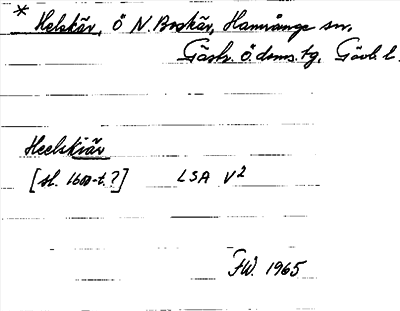 * Helskär, ö N. Boskär, Hamrånge sn.
Gästr. ö. doms. tg. Gävl. l.
Heelskiär
[sl. 1600-t.?] LSA V2
FW. 1965